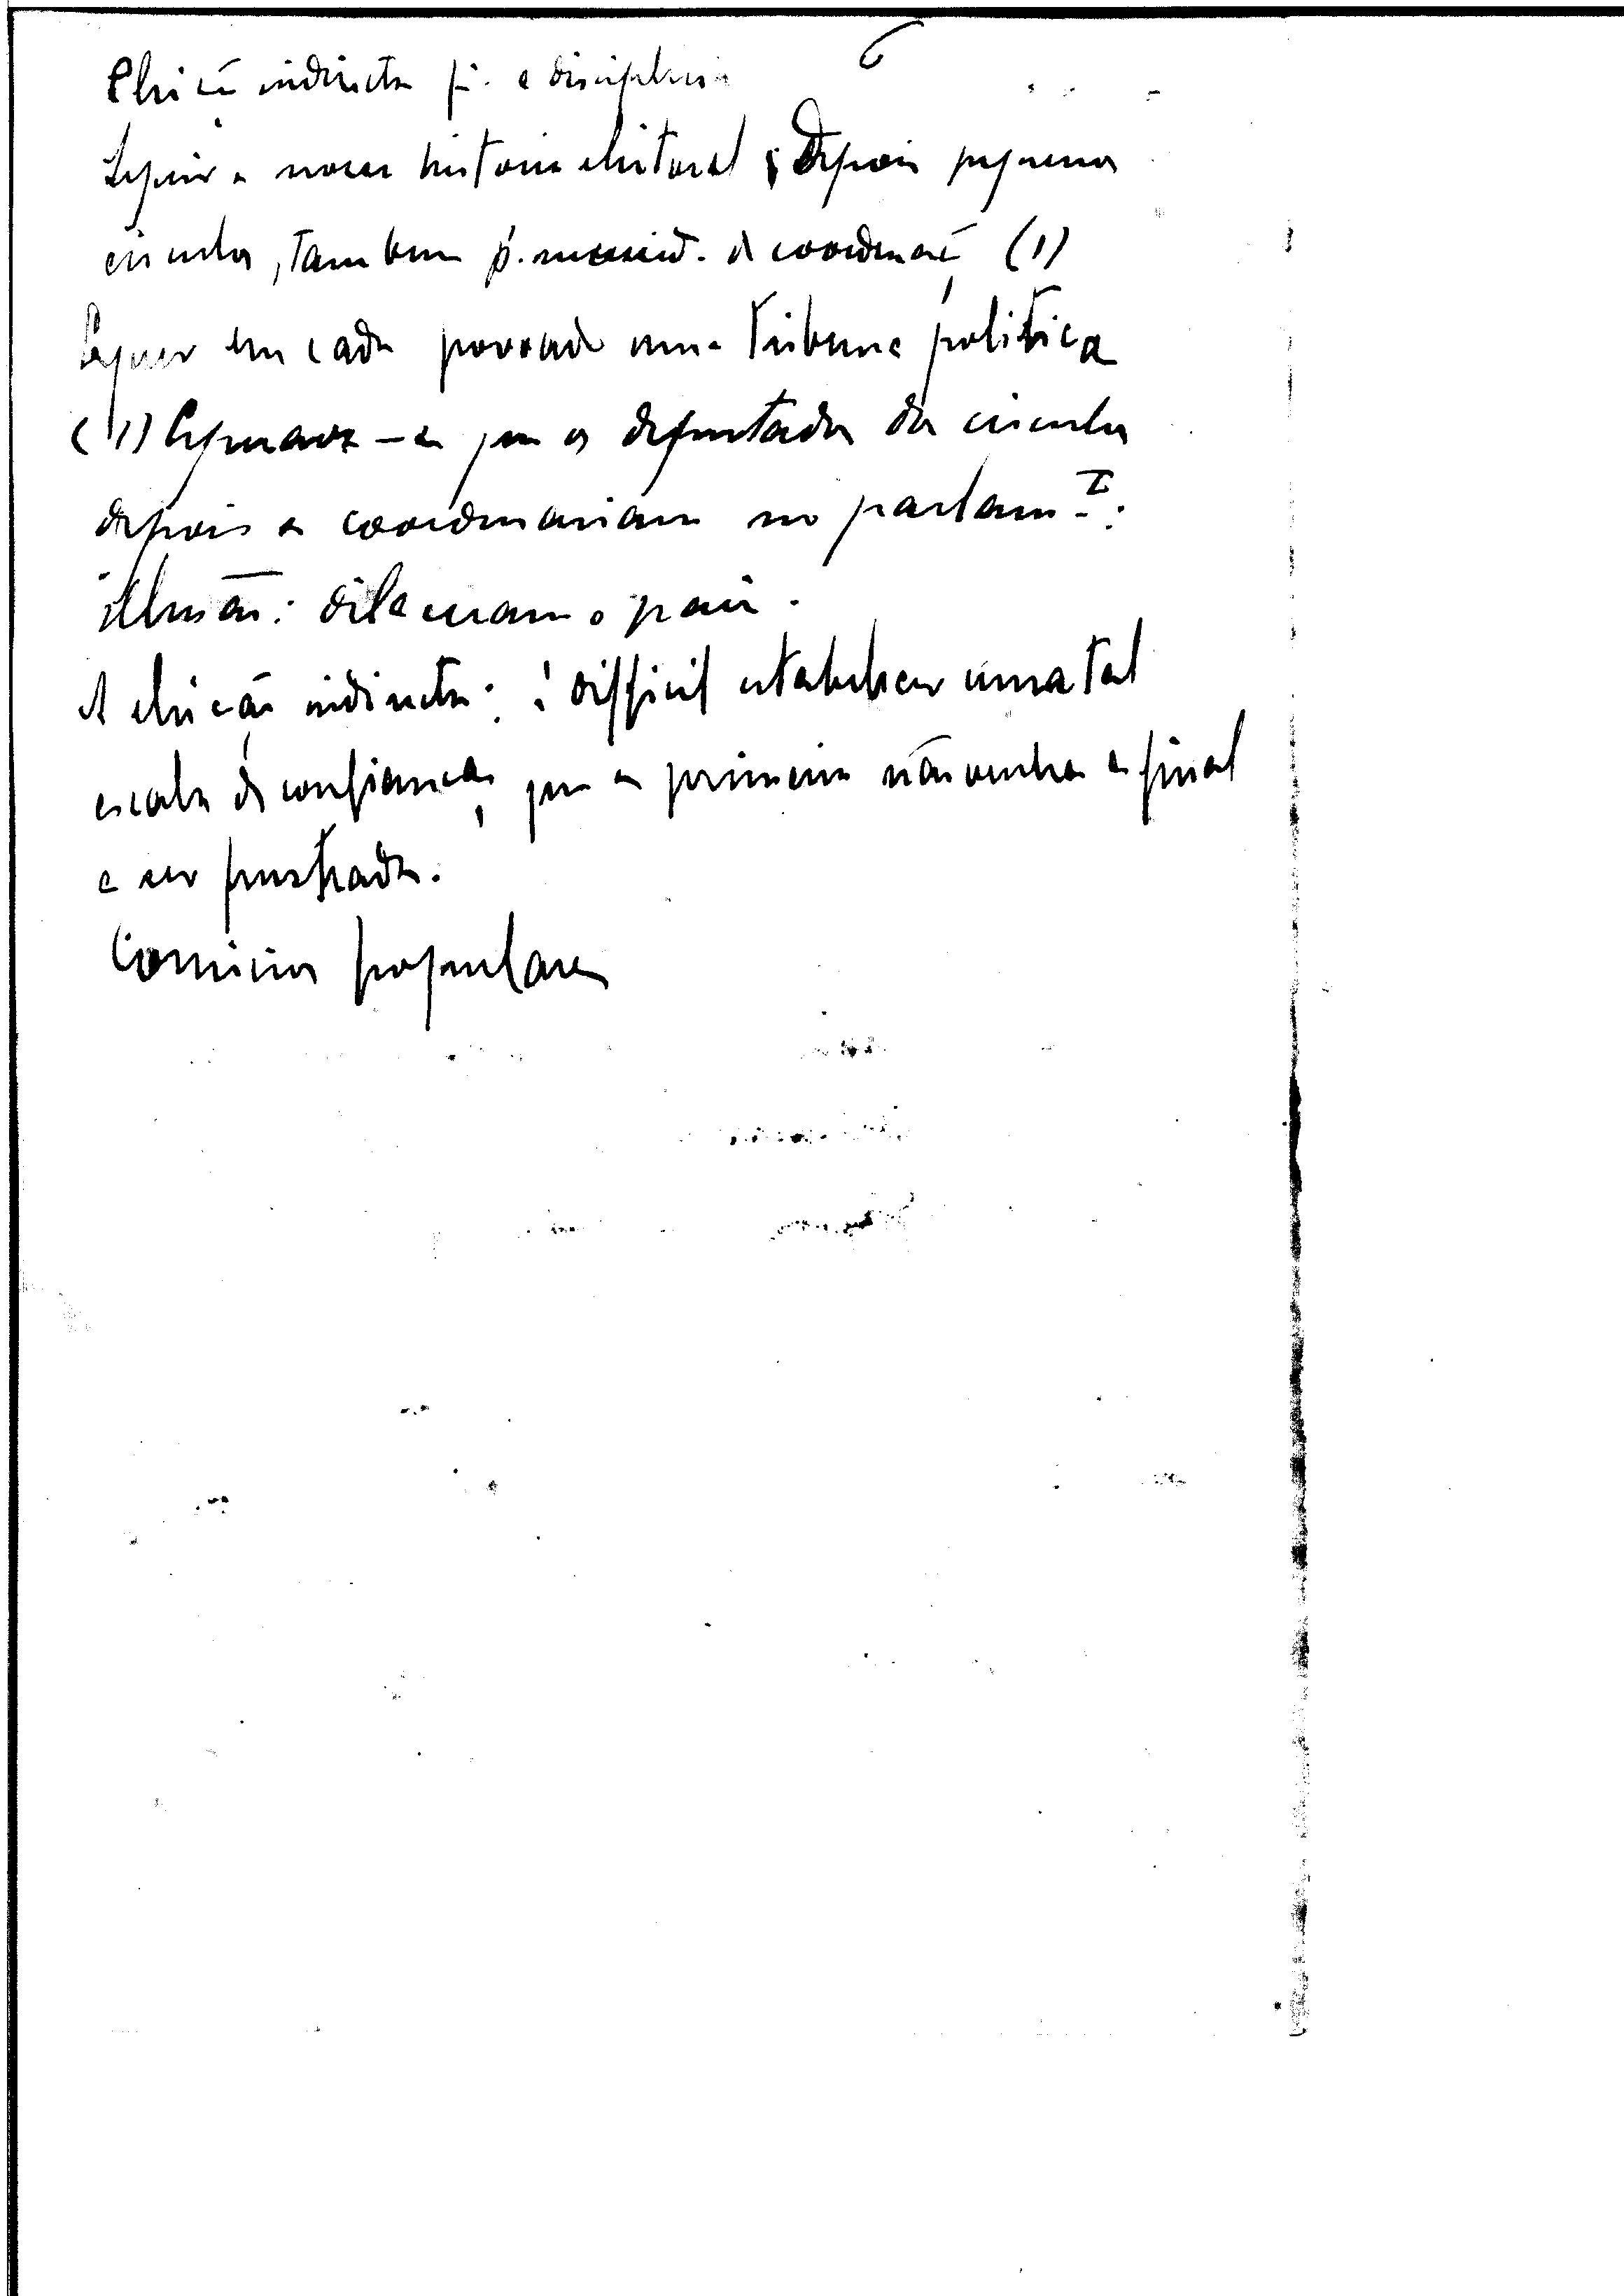 6
Eleição indirecta p.ª a disciplina
Seguir a nossa historia eleitoral; Depois pequenos
circulos, tambem p. necessid. de coordenaç̃ (1)
Erguer em cada povoado uma tribuna politica
(1) Esperava-se que os deputados dos circulos
depois se coordenariam no parlamto:
illusão: dilaceram o paiz.
A eleição indirecta: é difficil estabelecer uma tal
escala de confiança, que a primeira não venha a final
a ser frustrada.
Comicios populares